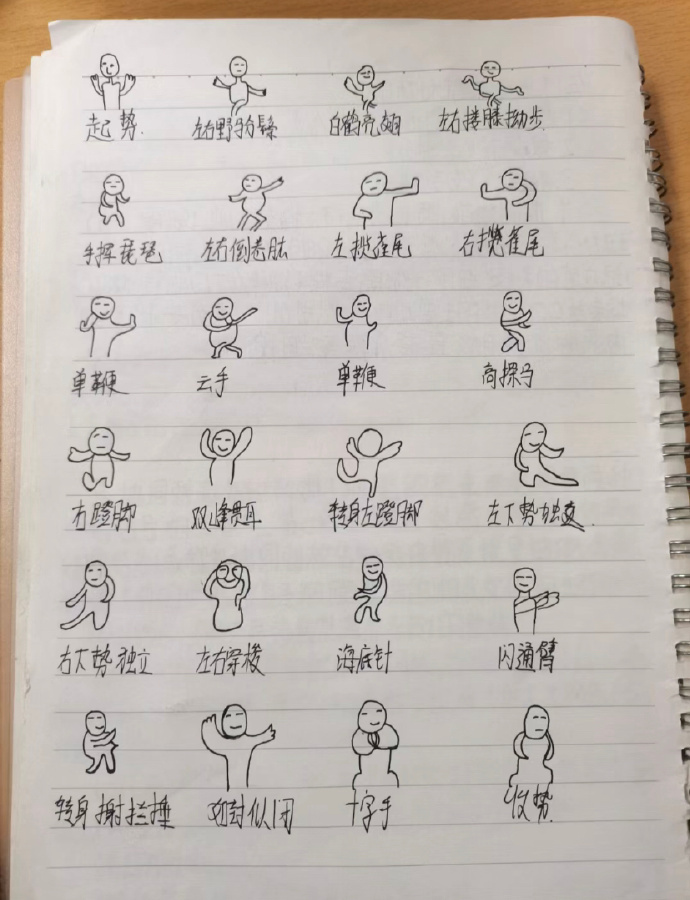 起势. 左右野马鬃 白鹤亮翅 左右搂膝拗步
手挥琵琶 左右倒卷肱 左揽雀尾 右揽雀尾
单鞭 云手 单鞭 高探马
右蹬脚 双峰贯耳 转身左蹬脚 左下势独立.
右下势独立 左右穿梭 海底针 闪通臂
转身搬拦捶 如封似闭 十字手 收势.